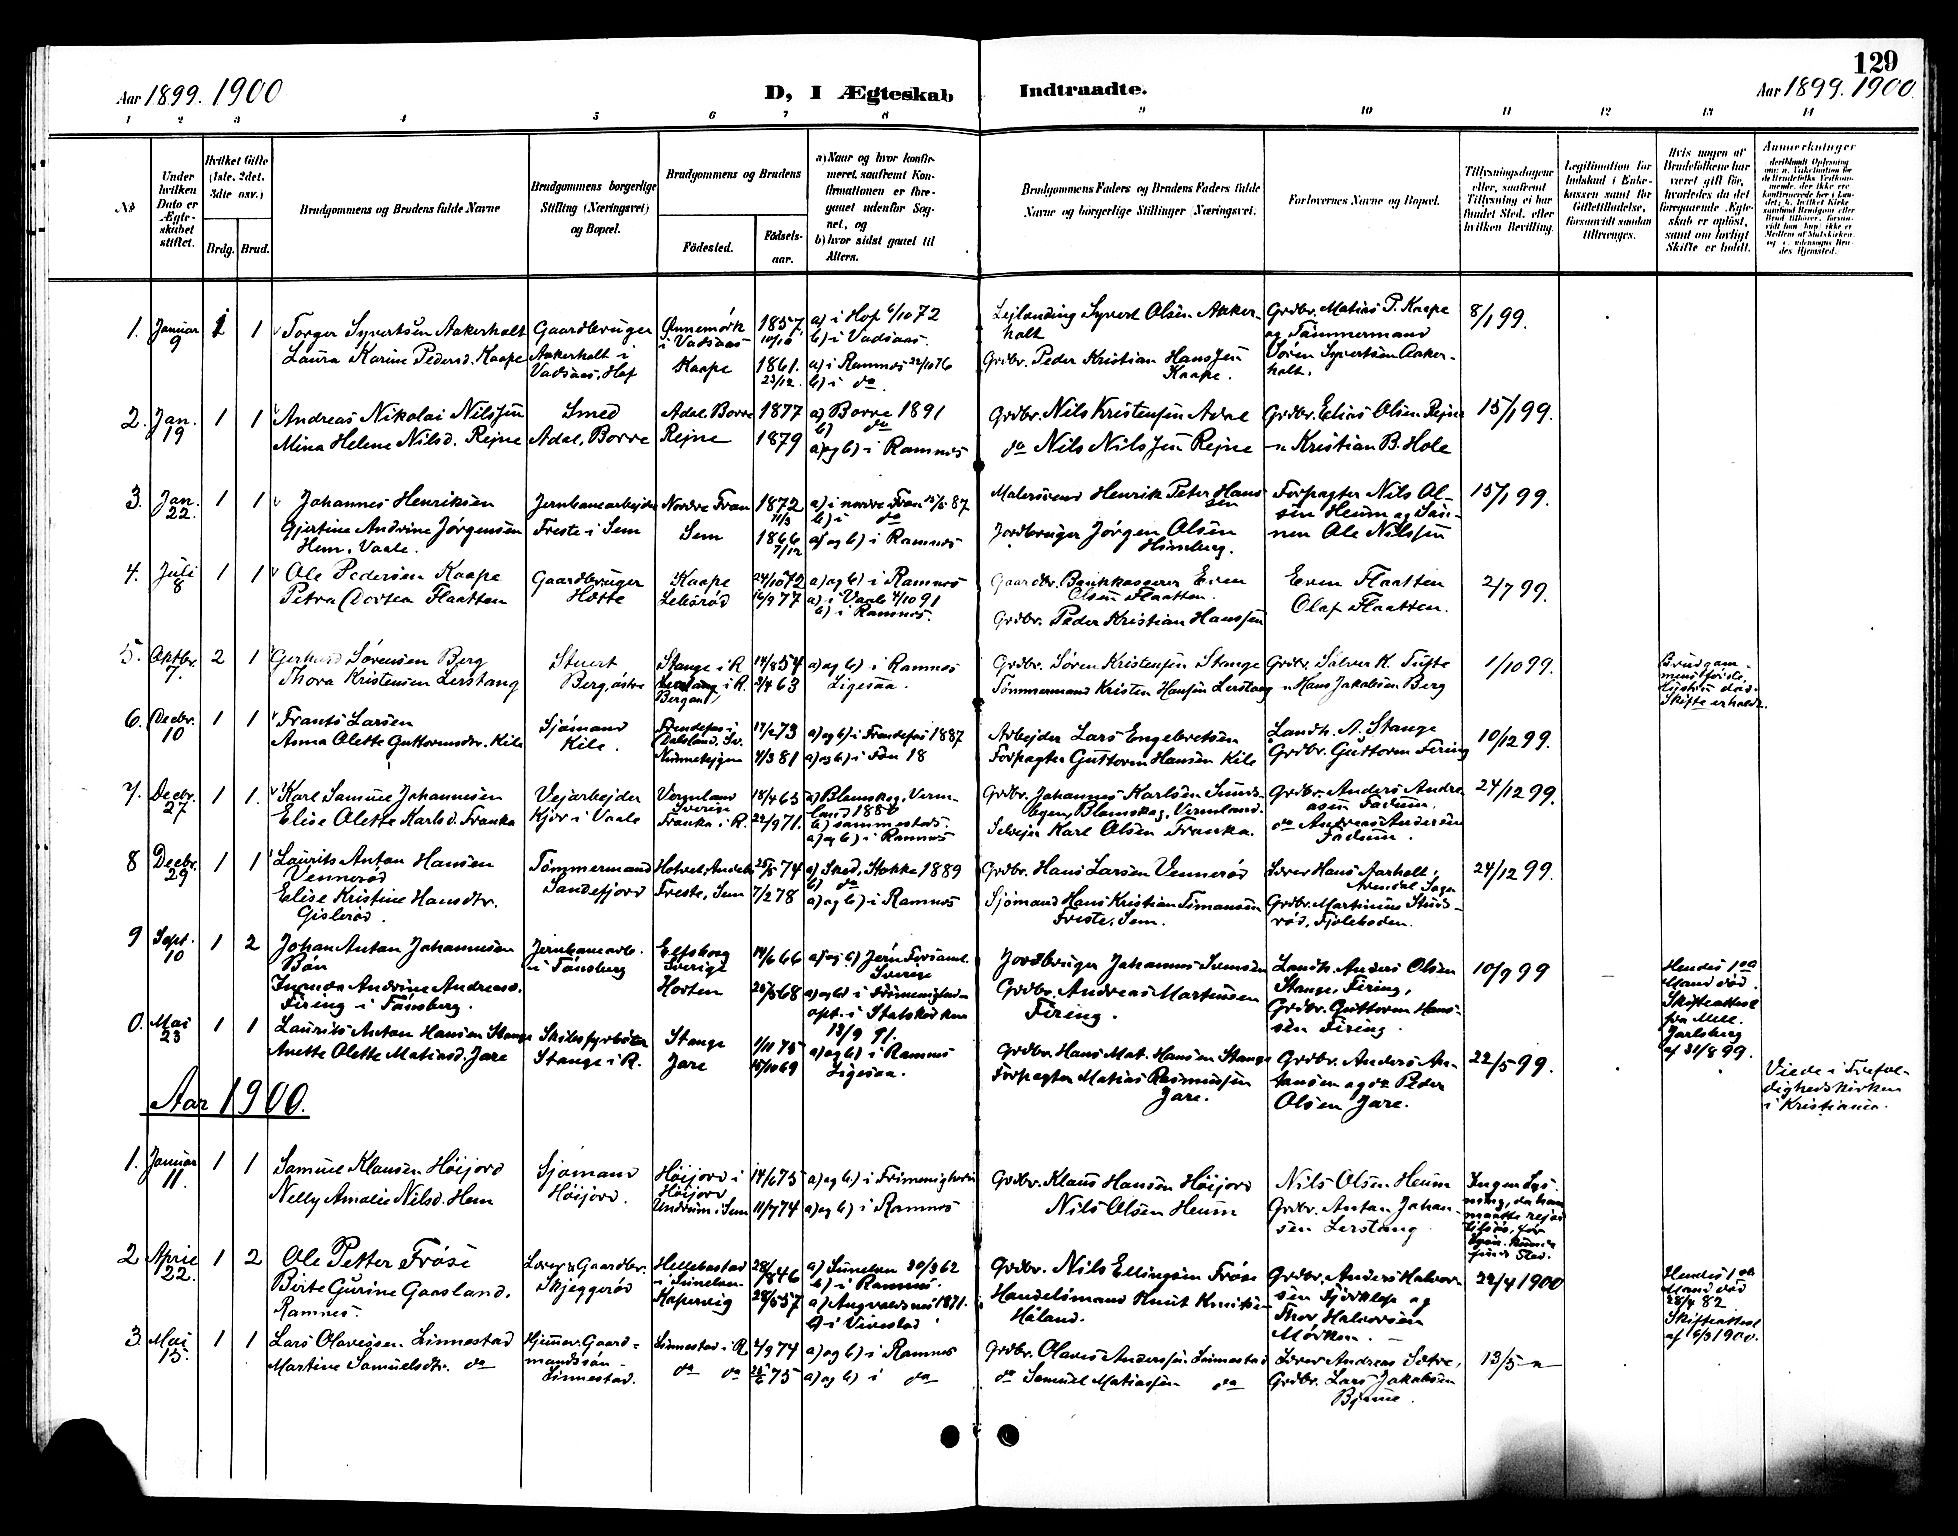 129
Aar 1899. 1900
D, I Ægteskab Indtraadte.
Aar 1899. 1900.
1 2 3 4 5 6 7 8 9 10 11 12 13 14
No
Under hvilken Dato er Ægteskabet stiftet.
Hvilket Gifte (1ste, 2det, 3die osv.)
Brdg. Brud.
Brudgommens og Brudens fulde Navne
Brudgommens borgerlige Stilling (Næringsvei) og Bopæl.
Brudgommens og Brudens
Fødested. Fødselsaar.
a) Naar og hvor konfirmeret, saafremt Konfirmationen er foregaaet udenfor Sognet, og
b) hvor sidst gaaet til Alters.
Brudgommens Faders og Brudens Faders fulde Navne og borgerlige Stillinger (Næringsvei).
Forlovernes Navne og Bopæl.
Tillysningsdagene eller, saafremt Tillysning ei har fundet Sted, efter hvilken Bevilling.
Legitimation for Indskud i Enkekassen samt for Giftetilladelse, forsaavidt saadan tiltrænges.
Hvis nogen af Brudefolkene har været gift før, hvorledes da det foregaaende Ægteskab er opløst, samt om lovligt Skifte er holdt.
Anmærkninger
1. Januar 9 1 1 Torger Syvertsen Aakerholt
Laura Karine Pedersd. Kaape
Gaardbruger
Aakerholt i Vadsaas, Hof
Ønnemørk i Vadsaas 1857 10/10
Kaape 1861. 23/12
a) i Hof 6/10 72
b) i Vadsaas.
a) i Ramnes 22/10 76
b) i do.
Lejlænding Syvert Olsen Aakerholt
Grdbr. Peder Kristian Hanssen Kaape.
Grdbr. Matias P. Kaape og Tømmermand Søren Syvertsen Aakerholt.
8/1 99.
2. Jan. 19 1 1 Andreas Nikolai Nilssen
Mina Helene Nilsd. Rejne
Smed
Adal, Borre
Adal, Borre 1877
Rejne 1879
a) Borre 1891
b) do
a) og b) i Ramnes
Grdbr. Nils Kristensen Adal
do Nils Nilssen Rejne
Grdbr. Elias Olsen Rejne
" Kristian B. Hole
15/1 99.
3. Jan. 22 1 1 Johannes Henriksen
Gjertine Andrine Jørgensen
Hem, Vaale.
Jernbanearbejder
Freste i Sem
Nordre Fron 1872 11/3
Sem 1866 7/12
a) i nordre Fron 87
b) i do
a) og b) i Ramnes
Malersvend Henrik Peter Hanssen
Jordbruger Jørgen Olsen Himberg.
Forpagter Nils Olsen Heum og Sønnen Ole Nilssen
15/1 99.
4. Juli 8 1 1 Ole Pedersen Kaape
Petra Dortea Flaatten
Gaardbruger
Hotte
Kaape 24/10 72
16/9 77
a) og b) i Ramnes
a) i Vaale 4/10 91
b) i Ramnes.
Gaardbr. Bankkasserer Even Olsen Flaatten.
Grdbr. Peder Kristian Hanssen
Even Flaatten
Olaf Flaatten.
2/7 99.
5. Oktbr. 7. 2 1 Gerhard Sørensen Berg
Thora Kristensen Lerstang
Stuert
Berg, østre
Stange i R. 14/8 54
Lerstang i R. 3/4 63
a) og b) i Ramnes
Ligesaa.
Grdbr. Søren Kristensen Stange
Tømmermand Kristen Hansen Lerstang
Grdbr. Sølver K. Tufte
" Hans Jakobsen Berg
1/10 99.
Brudgommens første Hustru død. Skifte er holdt.
6. Decbr. 10 1 1 Frants Larsen
Anna Olette Guttormsdtr. Kile
Sjømand
Kile.
Frendefos i Dalsland, Sv. 17/2 73
4/3 81
a) og b) i Frendefos 1887
a) og b) i Fon 18
Arbejder Lars Engebretsen
Forpagter Guttorm Hansen Kile
Landh. A. Stange
Grdbr. Guttorm Firing
10/12 99.
7. Decbr. 27 1 1. Karl Samuel Johannesen
Elise Olette Karlsd. Franka
Vejarbejder
Kjør i Vaale
Vermland Sverige 18/4 65
Franka i R. 22/9 71.
a) Blomskog, Vermland 1880
b) sammesteds.
a) og b) i Ramnes
Grdbr. Johannes Karlsen, Blomskog, Vermland.
Selvejer Karl Olsen Franka.
Grdbr. Anders Andreasen Fadum.
do Andreas Andersen Fadum.
24/12 99.
8 Decbr. 29 1 1 Laurits Anton Hansen Vennerød
Elise Kristine Hansdtr. Gislerød.
Tømmermand
Sandefjord
Hotvedt, Andebu 25/5 74
Freste, Sem 7/2 78
a) Sked, Stokke 1889
b) do
a) og b) i Ramnes
Grdbr. Hans Larsen Vennerød
Sjømand Hans Kristian Simonsen Freste, Sem.
Lærer Hans Aarholt, Arendal Sogn
Grdbr. Martinius Studsrød, Fjeleboden.
24/12 99.
9 Sept. 10 1 2 Johan Anton Johannesen Bøn
Andrine Andreasd. Firing i Tønsberg.
Jernbanearb. i Tønsberg
Elfsborg Sverige 14/6 66
Horten 25/3 68
a) og b) Jern Forsaml. Sverige
a) og b) i Frimenighed. opt. i Statskirken 13/9 91.
Jordbruger Johannes Svensen
Grdbr. Andreas Martensen Firing.
Landh. Anders Olsen Stange, Firing,
Grdbr. Guttorm Hanssen Firing.
10/9 99
Hendes 1ste Mand død. Skifteattest fra Mell. Jarlsberg af 31/8 99.
0. Mai 23 1 1 Laurits Anton Hansen Stange
Anette Olette Matiasd. Jare
Skibsfyrbøter
Stange i R.
Stange 1/11 75
Jare 15/10 69
a) og b) i Ramnes
Ligesaa.
Grdbr. Hans Mat. Hansen Stange
Forpagter Matias Rasmussen Jare.
Grdbr. Anders Antonsen og do Peder Olsen Jare.
22/5 99.
Viede i Trefoldighedskirken i Kristiania.
Aar 1900.
1. Januar 11. 1 1 Samuel Klausen Høijord
Nelly Amalie Nilsd. Hem
Sjømand
Høijord.
Høijord i Høijord 14/6 75
Undrum i Sem 11/7 74
a) og b) i Frimenigheden
a) og b) i Ramnes
Grdbr. Klaus Hansen Høijord
Nils Olsen Heum
Nils Olsen Heum
Grdbr. Anton Johansen Lerstang
Ingen Lysning, da han maatte rejse tilsjøs, før Lysn. kunde finde Sted.
2 April 22. 1 2 Ole Petter Frøse
Birte Gurine Gaasland, Ramnes.
Lærer & Gaardbr.
Skjeggerød
Hellebostad i Sunelven 28/8 46
Kopervig 28/5 57
a) Sunelven 30/3 62
b) i Ramnes.
a) Augvaldsnes 1871.
b) i Vivestad
Grdbr. Nils Ellingsen Frøse
Handelsmand Knut Knutsen Høland.
Grdbr. Anders Halvorsen og Thor Halvorsen Mørken.
22/4 1900
Hendes 1ste Mand død 28/4 82 Skifteattest af 6/3 1900.
3. Mai 13. 1 1 Lars Olavessen Linnestad
Martine Samuelsdtr. do
Hjemmev. Gaardmandssøn Linnestad.
Linnestad i R. 2/9 74
do do 25/6 75
a) og b) i Ramnes
a) og b) i do
Grdbr. Olaves Anderssen Linnestad
do Samuel Matiassen do
Lærer Andreas Sætre,
Grdbr. Lars Jakobsen Bjune.
13/5 "